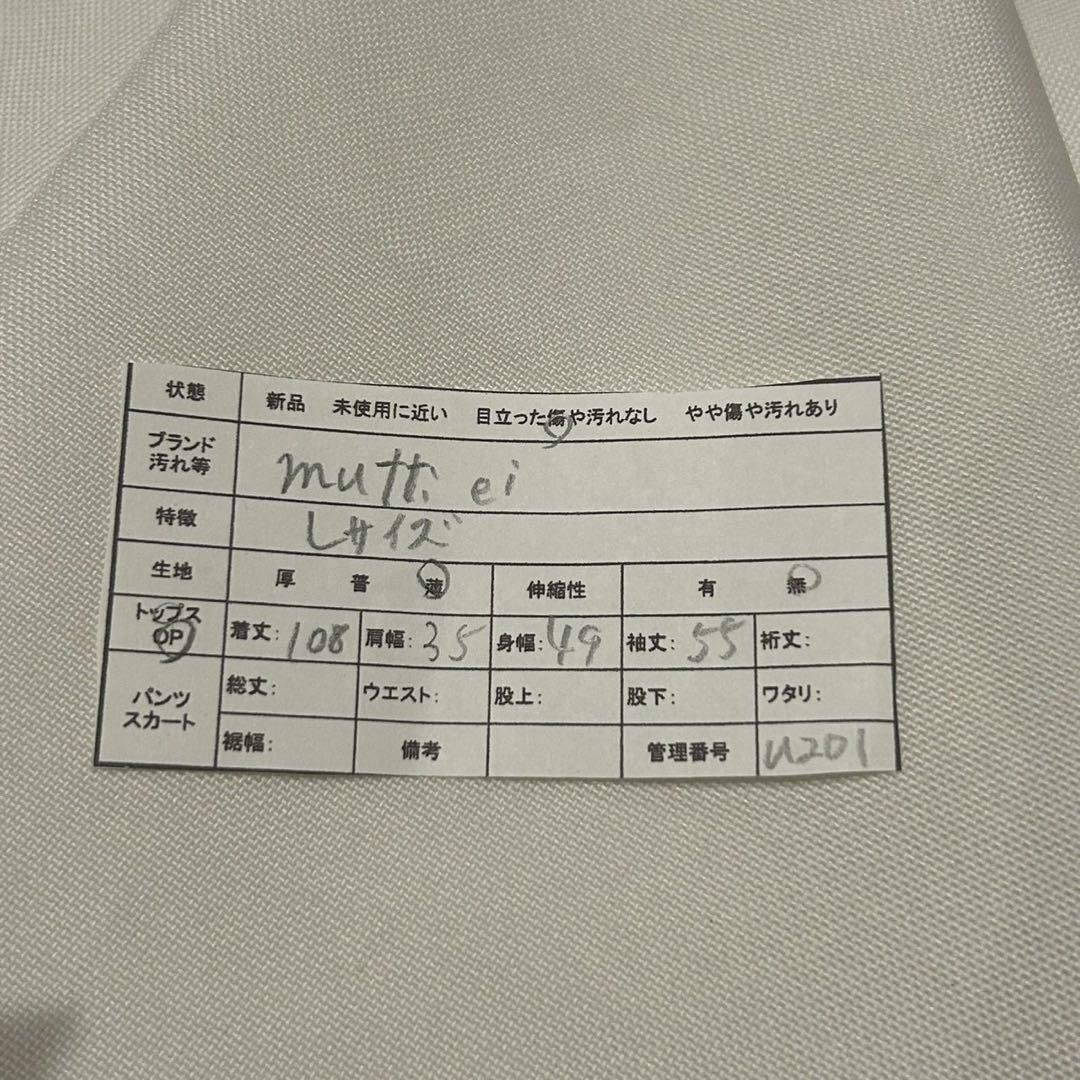 状態 新品 未使用に近い 目立った傷や汚れなし やや傷や汚れあり
ブランド
汚れ等 mutti ei
特徴 Lサイズ
生地 厚 普 薄 伸縮性 有 無
トップス
OP 着丈:108 肩幅:35 身幅:49 袖丈:55 裄丈:
パンツ
スカート 総丈: ウエスト: 股上: 股下: ワタリ:
裾幅: 備考 管理番号 U201